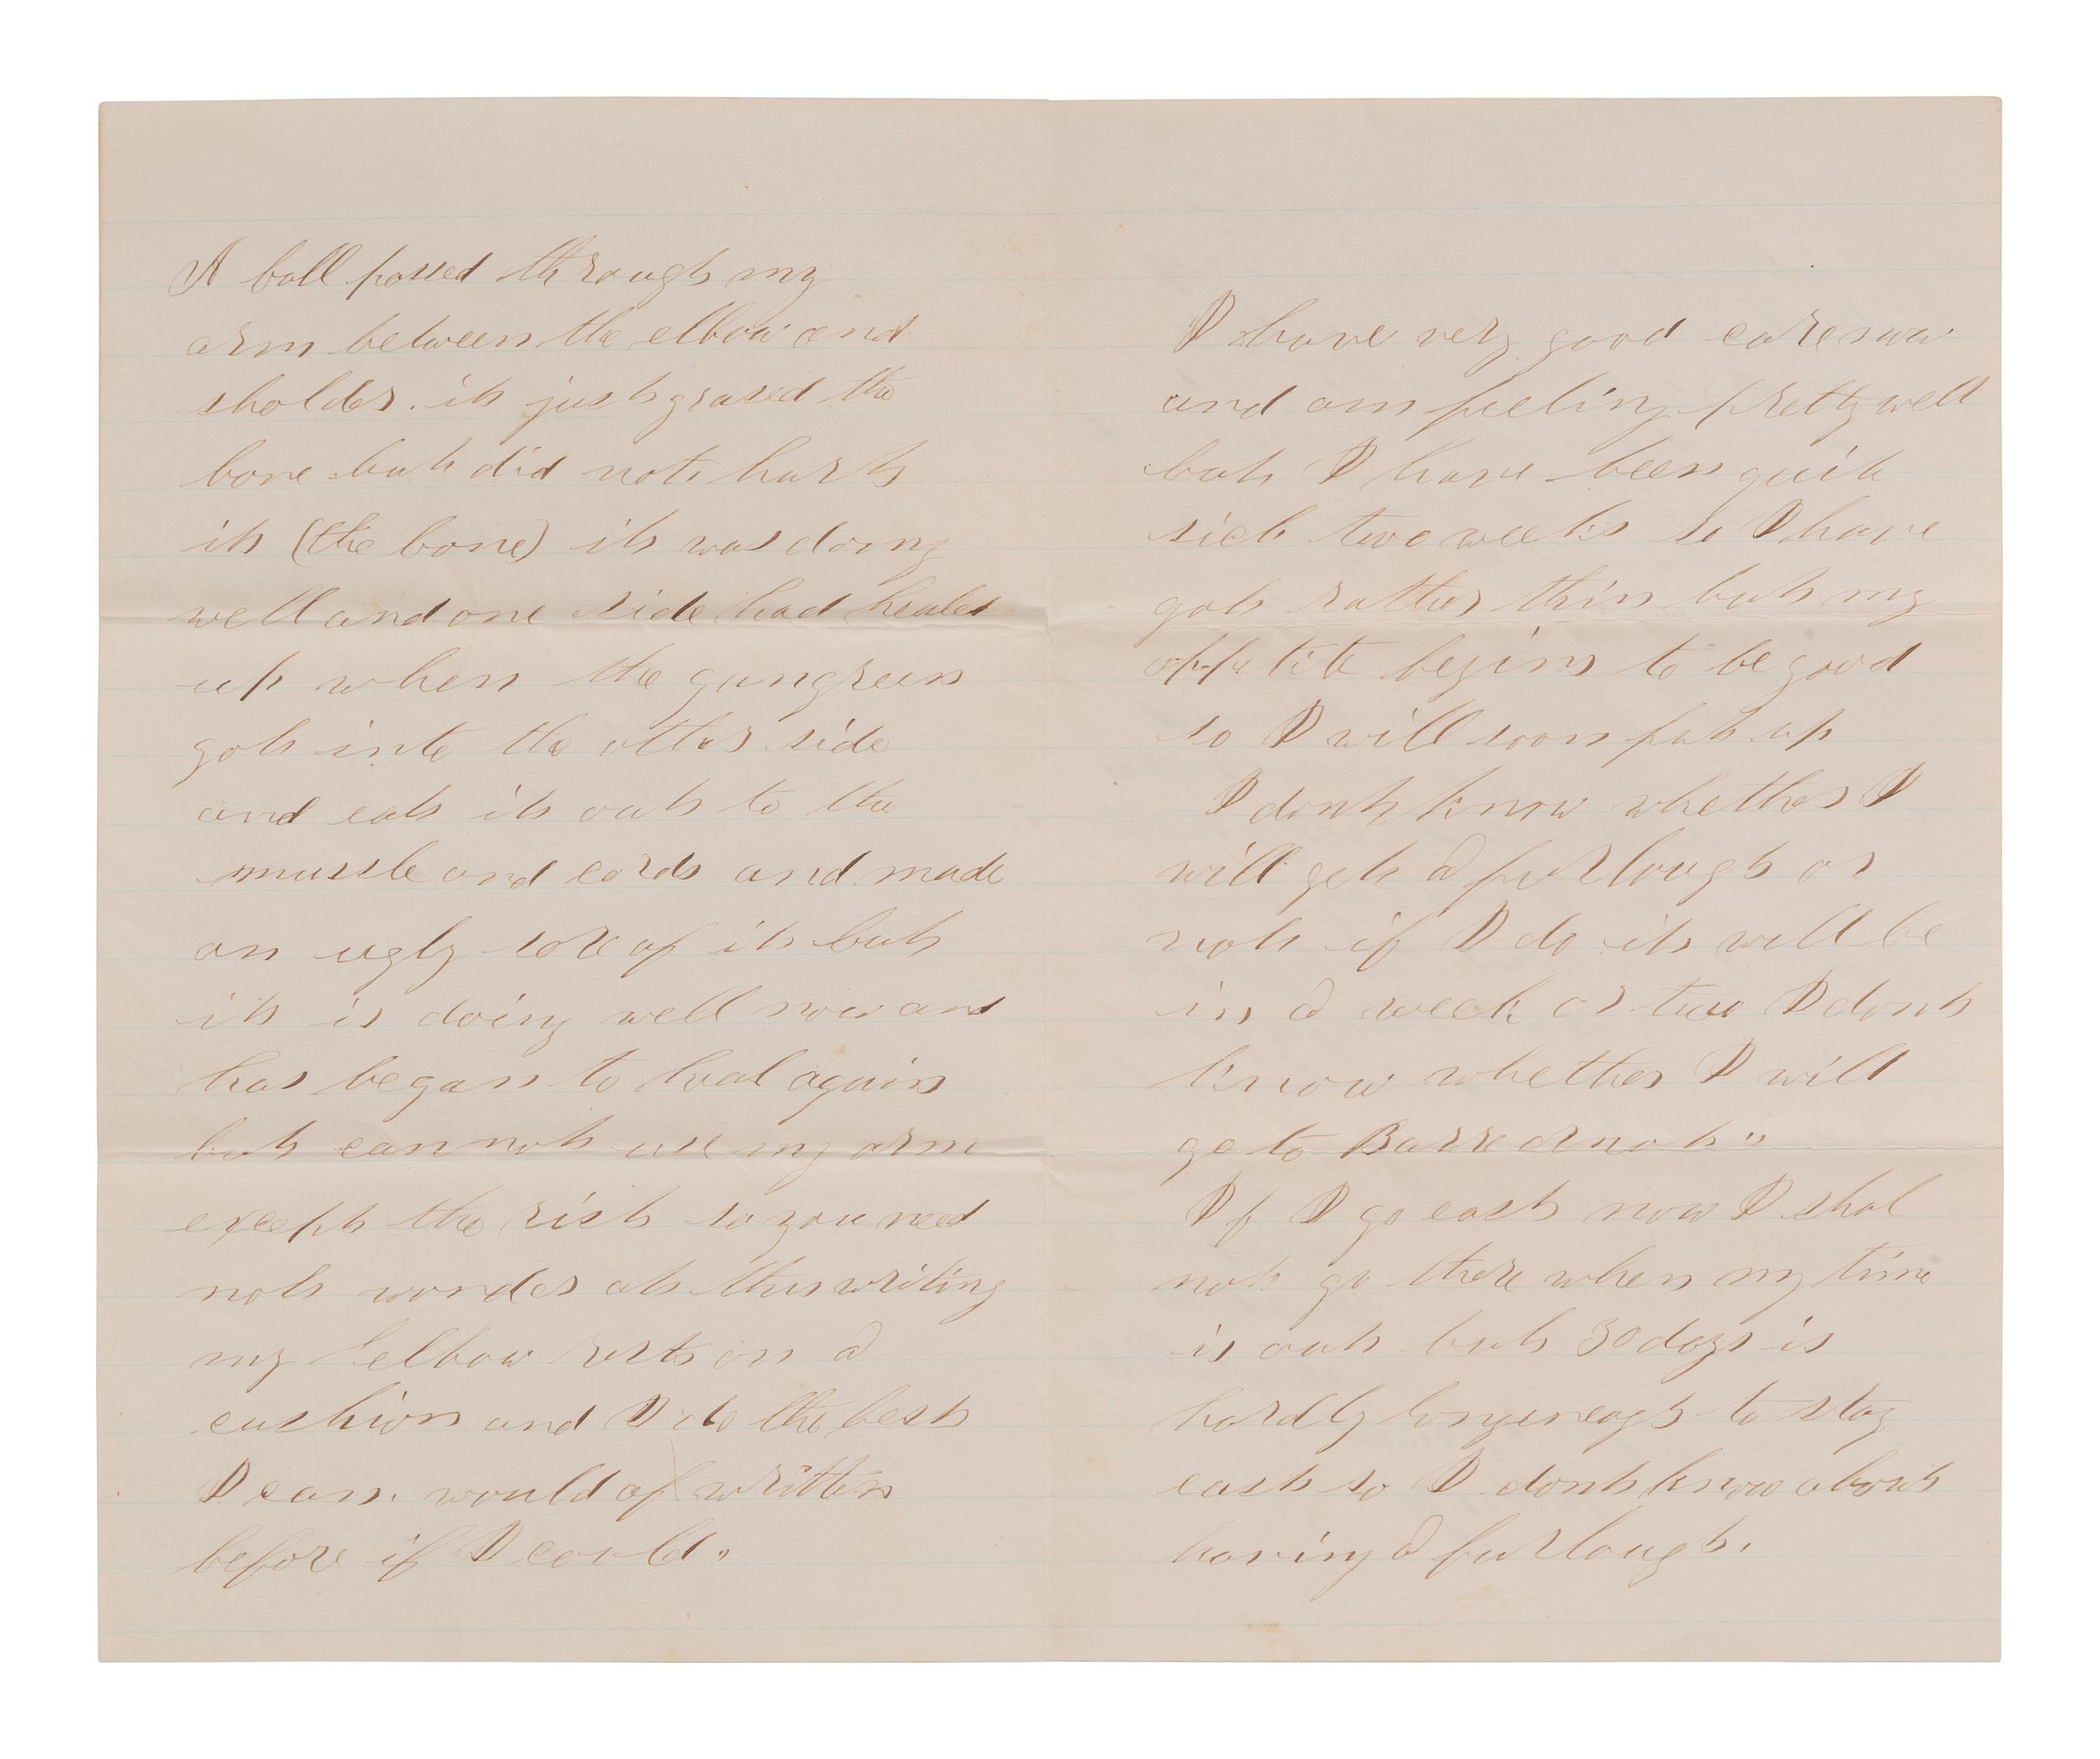 A ball passed through my
arm between the elbow and
sholder. it just grased the
bone but did not hurt
it (the bone) it was doing
well and one side had healed
up when the gangreen
got into the other side
and eat it out to the
mussle and cords and made
an ugly sore of it but
it is doing well now and
has began to heal again
but cannot use my arm
except the rist so you need
not wonder at this writing
my elbow rests on a
cushion and I do the best
I can. would of written
before if I could.
I have very good care now
and am feeling pretty well
but I have been quite
sick two weeks so I have
got rather thin but my
appetite begins to be good
so I will soon fat up
I dont know whether I
will get a furlough or
not if I do it will be
in a week or two I dont
know whether I will
go to Barre or not"
If I go east now I shal
not go there when my time
is out but 30 days is
hardly long enough to stay
east so I dont know about
having a furlough.